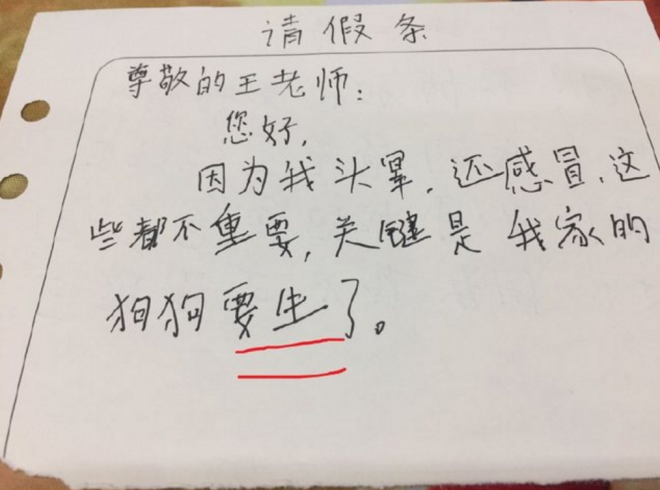 请假条
尊敬的王老师:
您好,
因为我头晕,还感冒,这
些都不重要,关键是我家的
狗狗要生了。